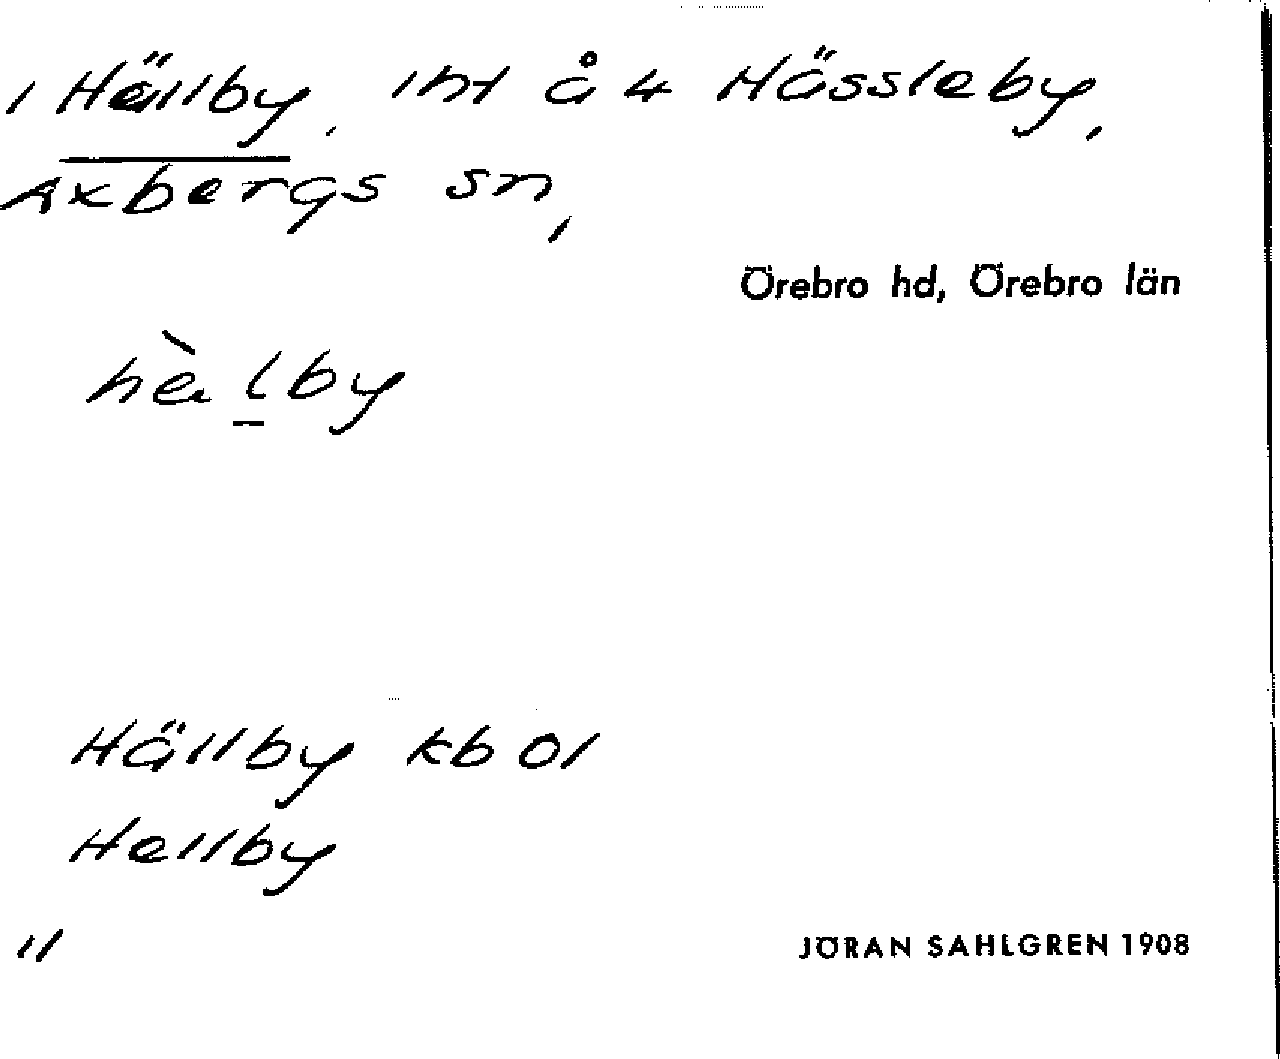 1 Hällby, int å 4 Hässleby,
Axbergs sn,
Örebro hd, Örebro län
hæ̀lby
Hällby kb 01
Hellby
11
JÖRAN SAHLGREN 1908